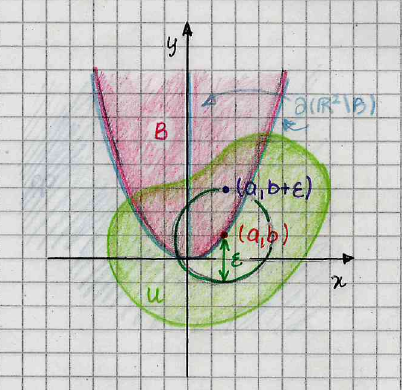 y
∂(ℝ²\B)
B
(a,b+ε)
(a,b)
ε
x
U